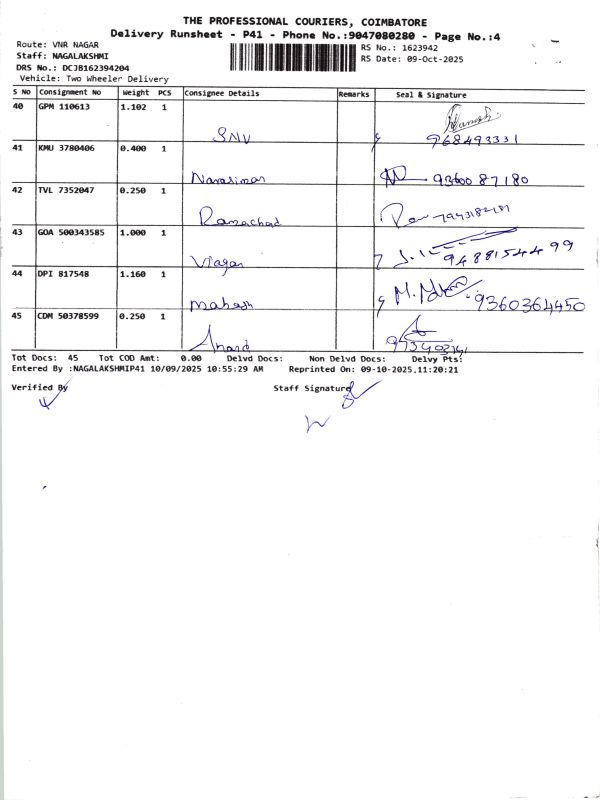 THE PROFESSIONAL COURIERS, COIMBATORE
Delivery Runsheet - P41 - Phone No.:9047080280 - Page No.:4
Route: VNR NAGAR
RS No.: 1623942
Staff: NAGALAKSHMI
RS Date: 09-Oct-2025
DRS No.: DCJB162394204
Vehicle: Two Wheeler Delivery
S No Consignment No Weight PCS Consignee Details Remarks Seal & Signature
40 GPM 110613 1.102 1
SNV 968493331
41 KMU 3780406 0.400 1
Narasiman 9360087180
42 TVL 7352047 0.250 1
Ramachad
43 GOA 500343585 1.000 1
9488154499
44 DPI 817548 1.160 1
Mahesh 9360364450
45 CDM 50378599 0.250 1
Anand
Tot Docs: 45 Tot COD Amt: 0.00 Delvd Docs: Non Delvd Docs: Delvy Pts:
Entered By :NAGALAKSHMIP41 10/09/2025 10:55:29 AM Reprinted On: 09-10-2025.11:20:21
Verified By Staff Signature